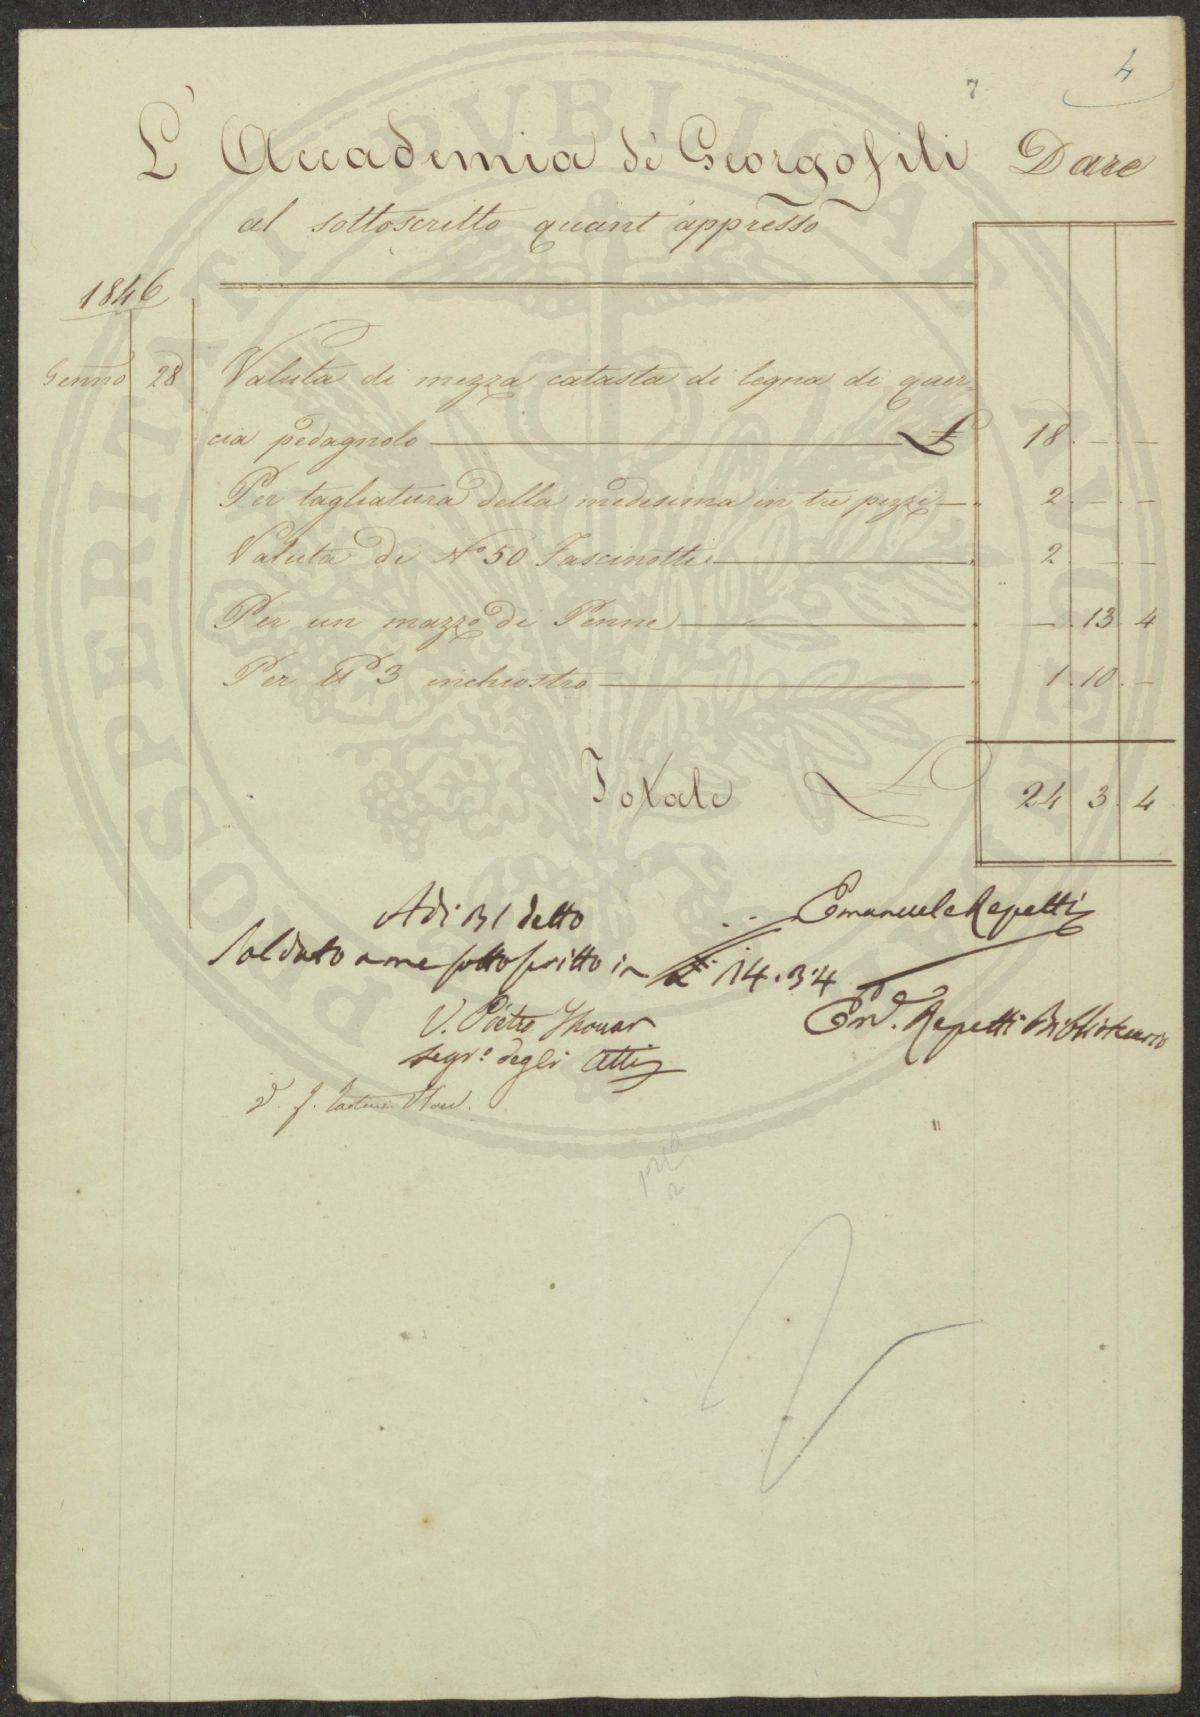 4
7
L'Accademia de Georgofili Dare
al sottoscritto quant'appresso
1846
Genno 28 Valuta di mezza catasta di legna di quer-
cia pedagnolo £ 18 . — . —
Per tagliatura della medesima in tre pezzi — " 2 . — . —
Valuta di No 50 Fascinotti — " 2 . — . —
Per un mazzo di Penne — " — . 13 . 4
Per 3 inchiostro — " 1 . 10 . —
Totale £ 24 3 . 4
Emanuele Repetti
Adi 31 detto
Saldato a me sottoscritto in £ 14.3.4
Em. Repetti Bibliotecario
V. Pietro Thouar
segr.o degli Atti
V.
POSPERITATI PVBLICAE AVGENDAE